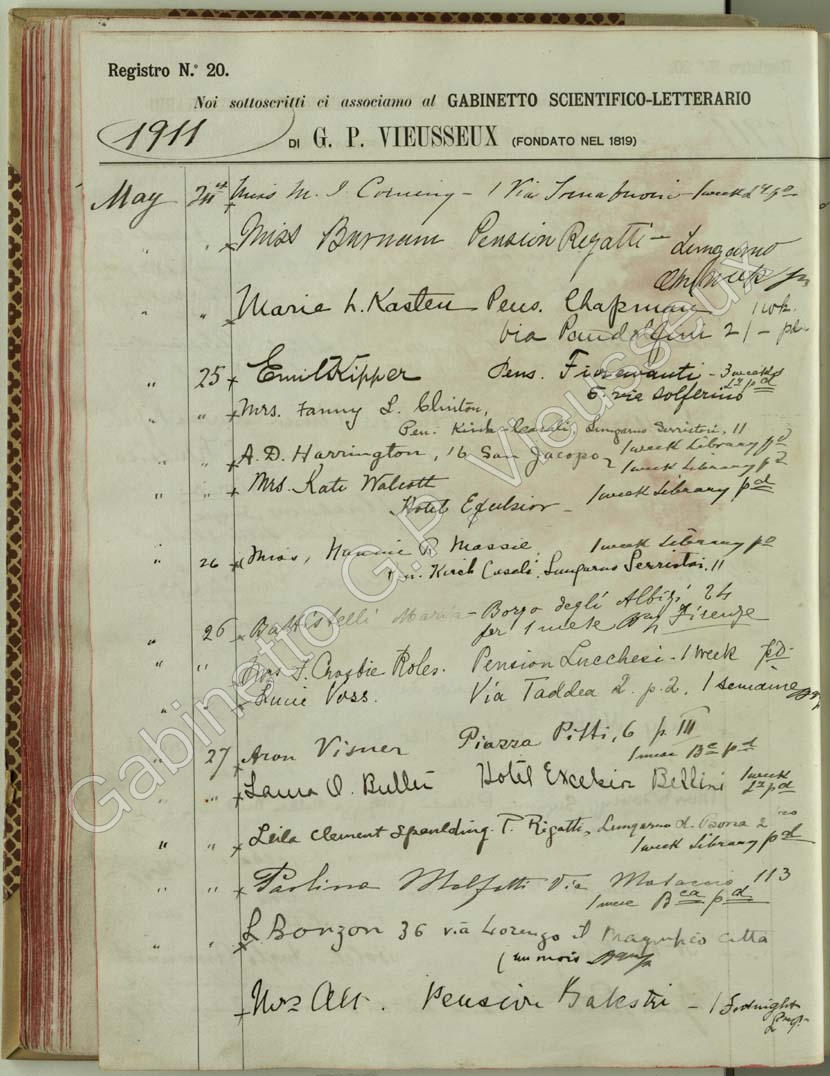 Registro N.º 20.
Noi sottoscritti ci associamo al GABINETTO SCIENTIFICO-LETTERARIO
1911
DI G. P. VIEUSSEUX (FONDATO NEL 1819)
May 24 Miss M. J. Corning - 1 Via Tornabuoni - 1 week
" " Miss Burnam Pension Rigatti - Lungarno
" " Marie L. Kasten Pens. Chapman 1 wk.
Via Pandolfini 21 - pd.
" 25 Emil Kipper Pens. Fioravanti - 3 weeks
5. via Solferino pd
" " Mrs. Fanny L. Clinton,
Pen. Casali, Lungarno Serristori, 11
" " A. D. Harrington, 16 San Jacopo 1 week Library pd
1 week Library pd
" " Mrs. Kate Walcott
Hotel Excelsior - 1 week Library pd
" 26 Miss, Nannie R Massie, 1 week Library pd
Pen. Kirch Casali, Lungarno Serristori, 11
" 26 Battistelli Maria - Borgo degli Albizi 24
per 1 mese Firenze
" " Mrs F. Crosbie Roles. Pension Lucchesi. 1 week pd.
" Lucie Voss. Via Taddea 2. p. 2. 1 semaine
" 27 Aron Visner Piazza Pitti, 6 p. III
1 mese pd
" " Laura O. Hotel Excelsior Bellini 1 week
pd
" " Leila Clement Spaulding. P. Rigatti, Lungarno d.
1 week Library pd
" " Paolina Malfatti Via 113
1 mese Bca pd
" " L Bonzon 36 via Lorenzo il Magnifico
un mois
" " Mrs Alt. Pension Balestri - 1 Fortnight
Gabinetto G.P. Vieusseux